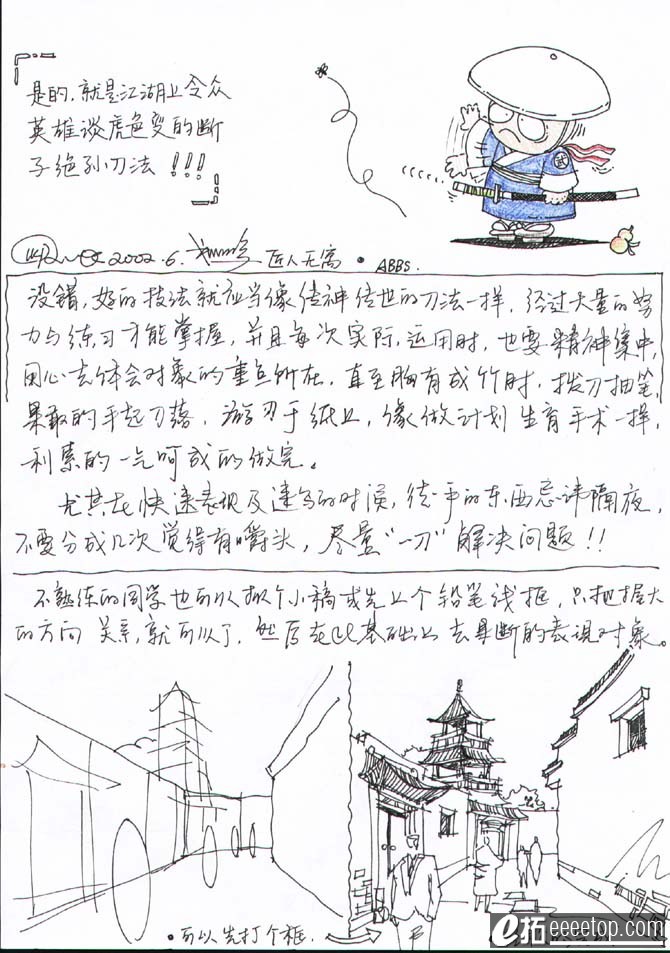 是的，就是江湖上令众
英雄谈虎色变的断
子绝孙刀法!!!
2002.6. 匠人无寓 · ABBS.
没错，好的技法就应当像传神传世的刀法一样，经过大量的努
力与练习才能掌握，并且每次实际运用时，也要精神集中，
用心去体会对象的重点所在，直至胸有成竹时，拔刀抽笔，
果敢的手起刀落，游刃于纸上，像做计划生育手术一样，
利索的一气呵成的做完。
尤其在快速表现及速写的时候，徒手的东西忌讳隔夜，
不要分成几次觉得有嚼头，尽量“一刀”解决问题!!
不熟练的同学也可以做个小稿或先上个铅笔线框，只把握大
的方向关系，就可以了，然后在此基础上去果断的表现对象。
·可以先打个框.
e拓 eeeetop.com